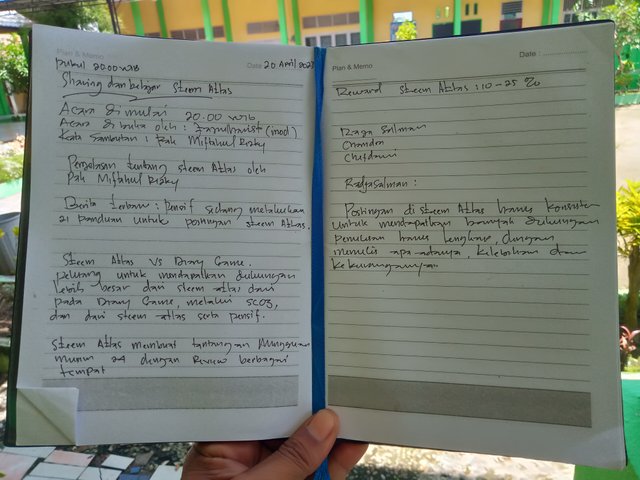 Plan & Memo
Pukul 20.00 WIB
Date 20 April 202
Sharing dan belajar Steem Atlas
Acara dimulai 20.00 WIB
Acara dibuka oleh : (mod)
Kata Sambutan : Pak Miftahul Rizky
Penjelasan tentang steem Atlas oleh
Pak Miftahul Rizky
Berita terbaru : pensif sedang melakukan
21 panduan untuk postingan steem Atlas.
Steem Atlas VS Diary Game.
Peluang untuk mendapatkan dukungan
lebih besar dari steem atlas dari
pada Diary Game, melalui SC03,
dan dari steem-atlas serta pensif.
Steem Atlas membuat tantangan Mingguan
24 dengan Review berbagai
tempat
Plan & Memo
Date :
Reward Steem Atlas : 10-25 %
Salman
Chandra
Radjasalman :
Postingan di steem Atlas harus konsisten
untuk mendapatkan banyak dukungan
penulisan harus lengkap, dengan
menulis apa-adanya, kelebihan dan
kekurangannya.